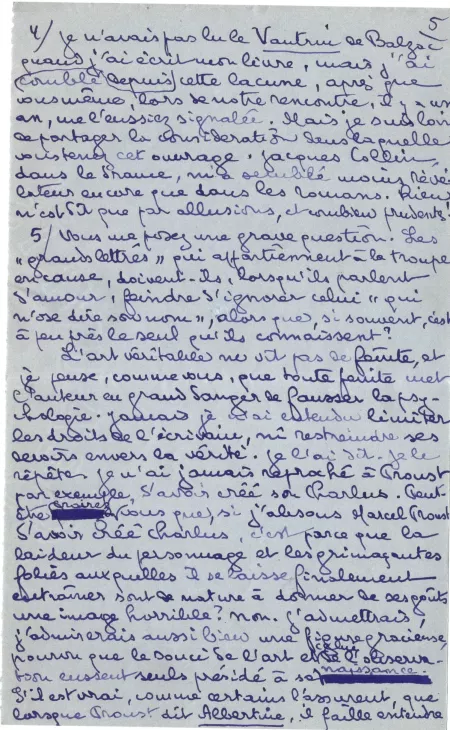 5
4/ Je n'avais pas lu le Vautrin de Balzac
quand j'ai écrit mon livre, mais j'ai
comblé depuis cette lacune, après que
vous-même, lors de notre rencontre, il y a un
an, me l'eussiez signalée. Mais je suis loin
de partager la considération dans laquelle
vous tenez cet ouvrage. Jacques Collin,
dans le drame, m'a semblé moins révé-
lateur encore que dans les romans. Rien
n'est dit que par allusions, et combien prudentes !
5/ Vous me posez une grave question. Les
« grands lettrés » qui appartiennent à la troupe
en cause, doivent-ils, lorsqu'ils parlent
d'amour, feindre d'ignorer celui « qui
n'ose dire son nom », alors que, si souvent, c'est
à peu près le seul qu'ils connaissent ?
L'art véritable ne vit pas de feinte, et
je pense, comme vous, que toute feinte met
l'auteur en grand danger de fausser la psy-
chologie. Jamais je n'ai entendu limiter
les droits de l'écrivain, ni restreindre ses
devoirs envers la vérité. Je l'ai dit. Je le
répète. Je n'ai jamais reproché à Proust
par exemple, d'avoir créé son Charlus. Peut-
être croirez vous que, si j'absous Marcel Proust
d'avoir créé Charlus, c'est parce que la
laideur du personnage et les grimaçantes
folies auxquelles il se laisse finalement
entraîner sont de nature à donner de ses goûts
une image horrible ? Non. J'admettrais,
j'admirerais aussi bien une figure gracieuse,
pourvu que le souci de l'art et celui de l'observa-
tion eussent seuls présidé à sa naissance.
S'il est vrai, comme certains l'assurent, que
lorsque Proust dit Albertine, il faille entendre